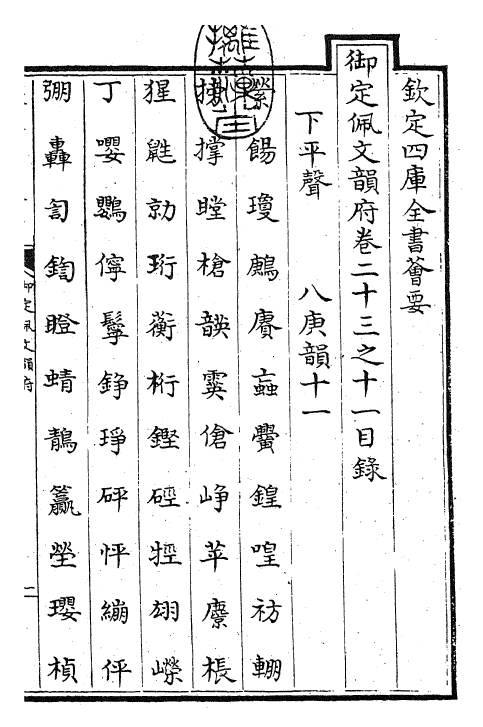 欽定四庫全書薈要
御定佩文韻府卷二十三之十一目錄
下平聲 八庚韻十一
縈 餳 瓊 鶊 賡 蝱 黌 鍠 喤 祊 輣
撐 瞠 槍 韺 霙 傖 崢 苹 麖 棖
猩 鼪 勍 珩 蘅 桁 鏗 硜 牼 翃 嶸
丁 嚶 鸚 儜 鬡 錚 琤 砰 怦 繃 伻
弸 轟 訇 鍧 瞪 蜻 鶄 籝 塋 瓔 楨
御定佩文韻府